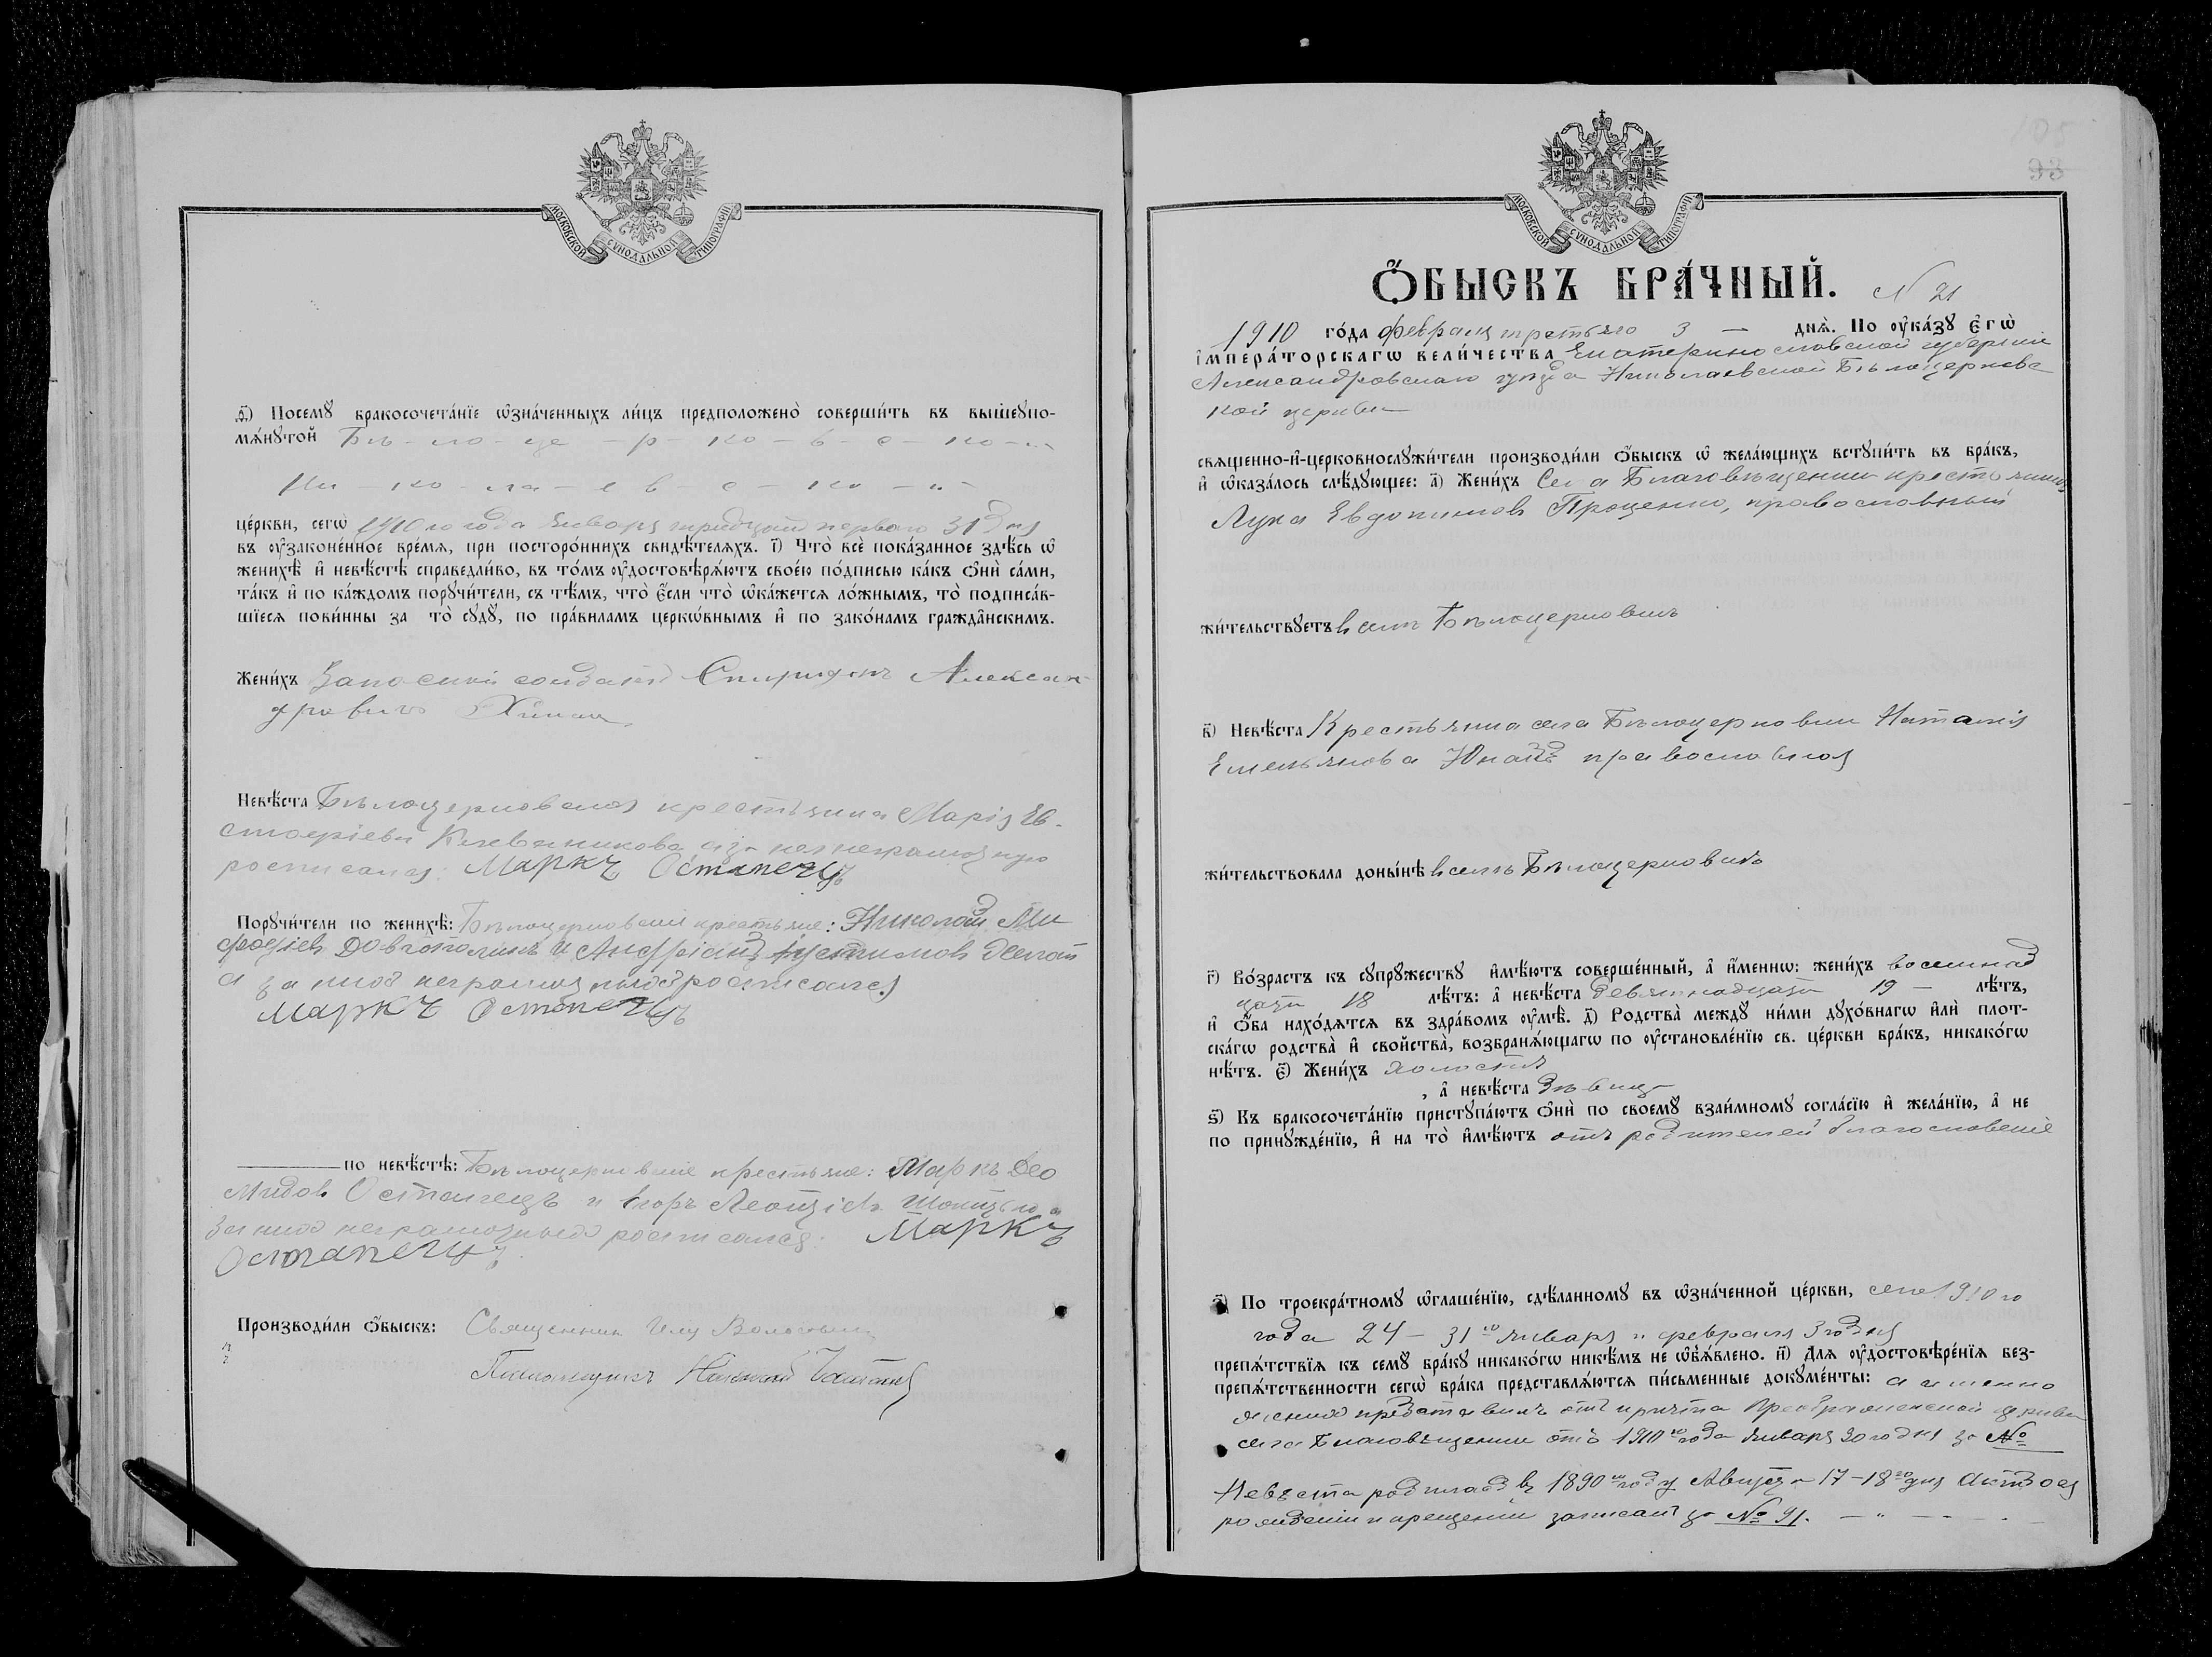 МОСКОВСКОЙ СѴНОДАЛЬНОЙ ТИПОГРАФІИ
ѳ҃) Посемꙋ̀ бракосочета́нїе ѡ҆зна́ченныхъ ли́цъ предположено̀ соверши́ть въ вышеꙋпо-
мѧ́нꙋтой Бѣ - ло - це - р - ко - в - с - ко - й
Ни - ко - ла - е в - с - ко - й -
це́ркви, сегѡ̀ 1910 го года Января тридцать перваго 31 дня
въ ᲂу҆законе́нное вре́мѧ, при посторо́ннихъ свидѣ́телѧхъ. і҃) Что̀ всѐ пока́занное здѣ́сь ѡ҆
женихѣ̀ и҆ невѣ́стѣ справедли́во, въ то́мъ ᲂу҆достовѣрѧ́ютъ свое́ю по́дписью ка́къ ѻ҆нѝ са́ми,
та́къ и҆ по ка́ждомъ порꙋчи́тели, съ тѣ́мъ, что̀ є҆́сли что̀ ѡ҆ка́жетсѧ ло́жнымъ, то̀ подписа́в-
шїесѧ пови́нны за то̀ сꙋдꙋ̀, по пра́виламъ церкѡ́внымъ и҆ по зако́намъ гражда̂нскимъ.
Жени́хъ Запасный солдатъ Спиридонъ Алексан-
дровичъ
Невѣ́ста Бѣлоцерковская крестьянка Марія Ев-
стафіева а за нея неграмотную
росписался: Маркъ Остапецъ
Порꙋчи́тели по женихѣ̀: Бѣлоцерковскіе крестьяне: Николай Ми
фодіевъ и Андріанъ Іустимовъ
а за нихъ неграмотныхъ росписался
Маркъ Остапецъ
по невѣ́стѣ: Бѣлоцерковскіе крестьяне: Маркъ Део
мидовъ Остапецъ и Леонтіевъ а
за нихъ неграмотныхъ росписался: Маркъ
Остапецъ.
Производи́ли ѻ҆́быскъ: Священникъ Илія
Псаломщикъ
МОСКОВСКОЙ СѴНОДАЛЬНОЙ ТИПОГРАФІИ
105
93
Ѻ҆́БЫСКЪ БРА́ЧНЫЙ. N 21
1910 го́да февраля третьяго 3 - днѧ̀. По ᲂу҆ка́зꙋ є҆гѡ̀
і҆мпера́торскагѡ вели́чества Екатеринославской губерніи
Александровскаго уѣзда Николаевской Бѣлоцерковс
кой церкви
свѧще́нно-и҆-церковнослꙋжи́тели производи́ли ѻ҆́быскъ ѡ҆ жела́ющихъ встꙋпи́ть въ бра́къ,
и҆ ѡ҆каза́лось слѣ́дꙋющее: а҃) Жени́хъ Села Благовѣщенки крестьянинъ
Лука Евдокимовъ Проценко, православный
жи́тельствꙋетъ въ селѣ Бѣлоцерковкѣ
в҃) Невѣ́ста Крестьянка села Бѣлоцерковки Наталія
Емельянова Юнакъ православная
жи́тельствовала доны́нѣ въ селѣ Бѣлоцерковкѣ
г҃) Во́зрастъ къ сꙋпрꙋ́жествꙋ и҆мѣ́ютъ соверше́нный, а҆ и҆́меннѡ: жени́хъ восемнад
цать 18 лѣ́тъ: а҆ невѣ́ста девятнадцать 19 - лѣ́тъ,
и҆ ѻ҆́ба нахо́дѧтсѧ въ здра́вомъ ᲂу҆мѣ̀. д҃) Родства̀ междꙋ̀ ни́ми дꙋхо́внагѡ и҆лѝ плот-
ска́гѡ родства̀ и҆ свойства̀, возбранѧ́ющагѡ по ᲂу҆становле́нїю св. це́ркви бра́къ, никако́гѡ
нѣ́тъ. є҃) Жени́хъ холостъ
, а҆ невѣ́ста дѣвица
ѕ҃) Къ бракосочета́нїю пристꙋпа́ютъ ѻ҆нѝ по своемꙋ̀ взаи́мномꙋ согла́сїю и҆ жела́нїю, а҆ не
по принꙋжде́нїю, и҆ на то̀ и҆мѣ́ютъ отъ родителей благословеніе
з҃) По троекра́тномꙋ ѡ҆глаше́нїю, сдѣ́ланномꙋ въ ѡ҆зна́ченной це́ркви, сего 1910 го
года 24 - 31 го января и февраля 3 го дня
препѧ́тствїѧ къ семꙋ̀ бра́кꙋ никако́гѡ никѣ́мъ не ѡ҆б̾ѧ́влено. и҃) Длѧ ᲂу҆достовѣре́нїѧ без-
препѧ́тственности сегѡ̀ бра́ка представлѧ́ютсѧ пи́сьменные докꙋме́нты: а именно
женихъ предъставилъ отъ причта Преображенской церкви
села Благовѣщенки отъ 1910 го года Января 30 го дня за №
Невѣста родилась въ 1890 мъ году Августа 17-18 го дня Актъ о ея
рожденіи и крещеніи записанъ за № 91.